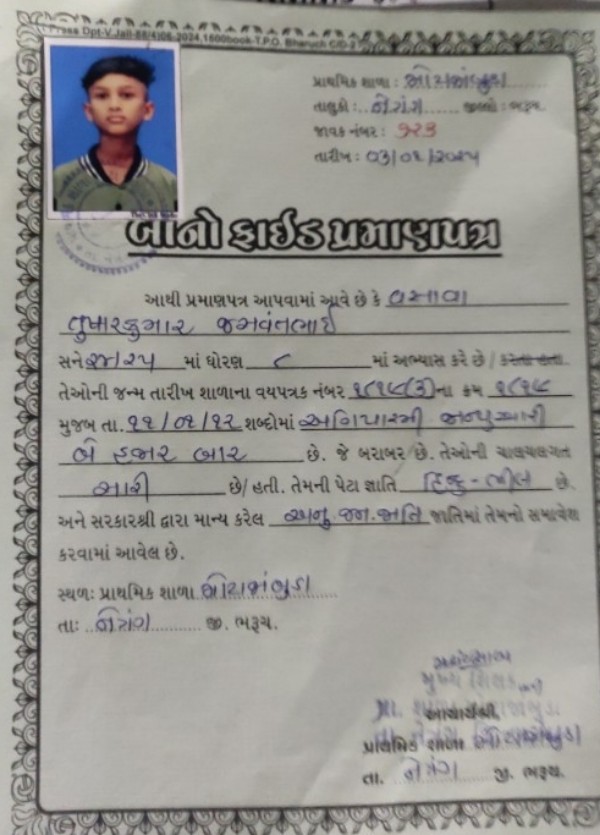 Press Dpt-V.Jali-88/4)06-2024,1600book-T.P.O. Bharuch C/D-2
પ્રાથમિક શાળા :
તાલુકો :.. નેત્રંગ જીલ્લો : ભરૂચ.
જાવક નંબર : ૧૨૩
તારીખ : ૦૩/૦૧/૨૦૨૫
બોનો ફાઇડ પ્રમાણપત્ર
આથી પ્રમાણપત્ર આપવામાં આવે છે કે વસાવા
તુષારકુમાર જશવંતભાઈ
સને ૨૦૨૫ માં ધોરણ ૮ માં અભ્યાસ કરે છે / કરતા હતા.
તેઓની જન્મ તારીખ શાળાના વયપત્રક નંબર ના ક્રમ
મુજબ તા. ૧૧/૦૧/૧૨ શબ્દોમાં અગિયારમી જાન્યુઆરી
બે હજાર બાર છે. જે બરાબર છે. તેઓની ચાલચલગત
સારી છે/ હતી. તેમની પેટા જ્ઞાતિ હિન્દુ - ભીલ છે.
અને સરકારશ્રી દ્વારા માન્ય કરેલ અનુ. જન. જાતિ જાતિમાં તેમનો સમાવેશ
કરવામાં આવેલ છે.
સ્થળ: પ્રાથમિક શાળા
તા: .. નેત્રંગ ........ જી. ભરૂચ.
મુખ્ય શિક્ષક
આચાર્યશ્રી,
પ્રાથમિક શાળા
તા. નેત્રંગ જી. ભરૂચ.